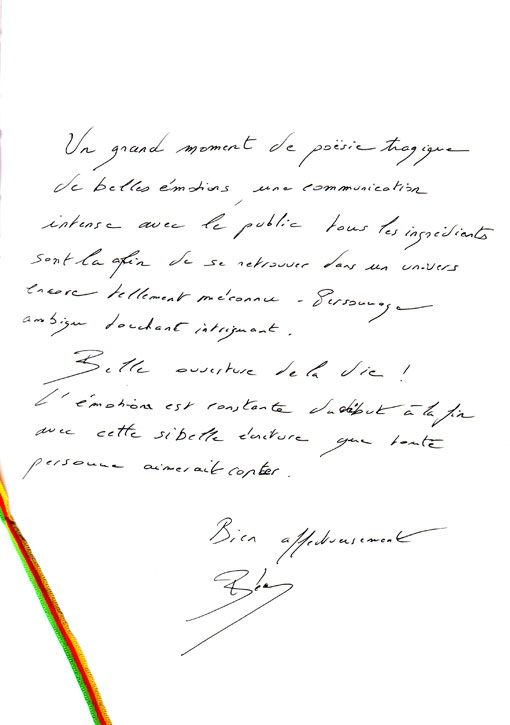 Un grand moment de poësie tragique
de belles émotions, une communication
intense avec le public tous les ingrédients
sont la afin de se retrouver dans un univers
encore tellement méconnu - Personnage
ambigu touchant intriguant.
Belle ouverture de la vie !
L'émotions est constante du début à la fin
avec cette si belle écriture que toute
personne aimerait capter.
Bien affectueusement